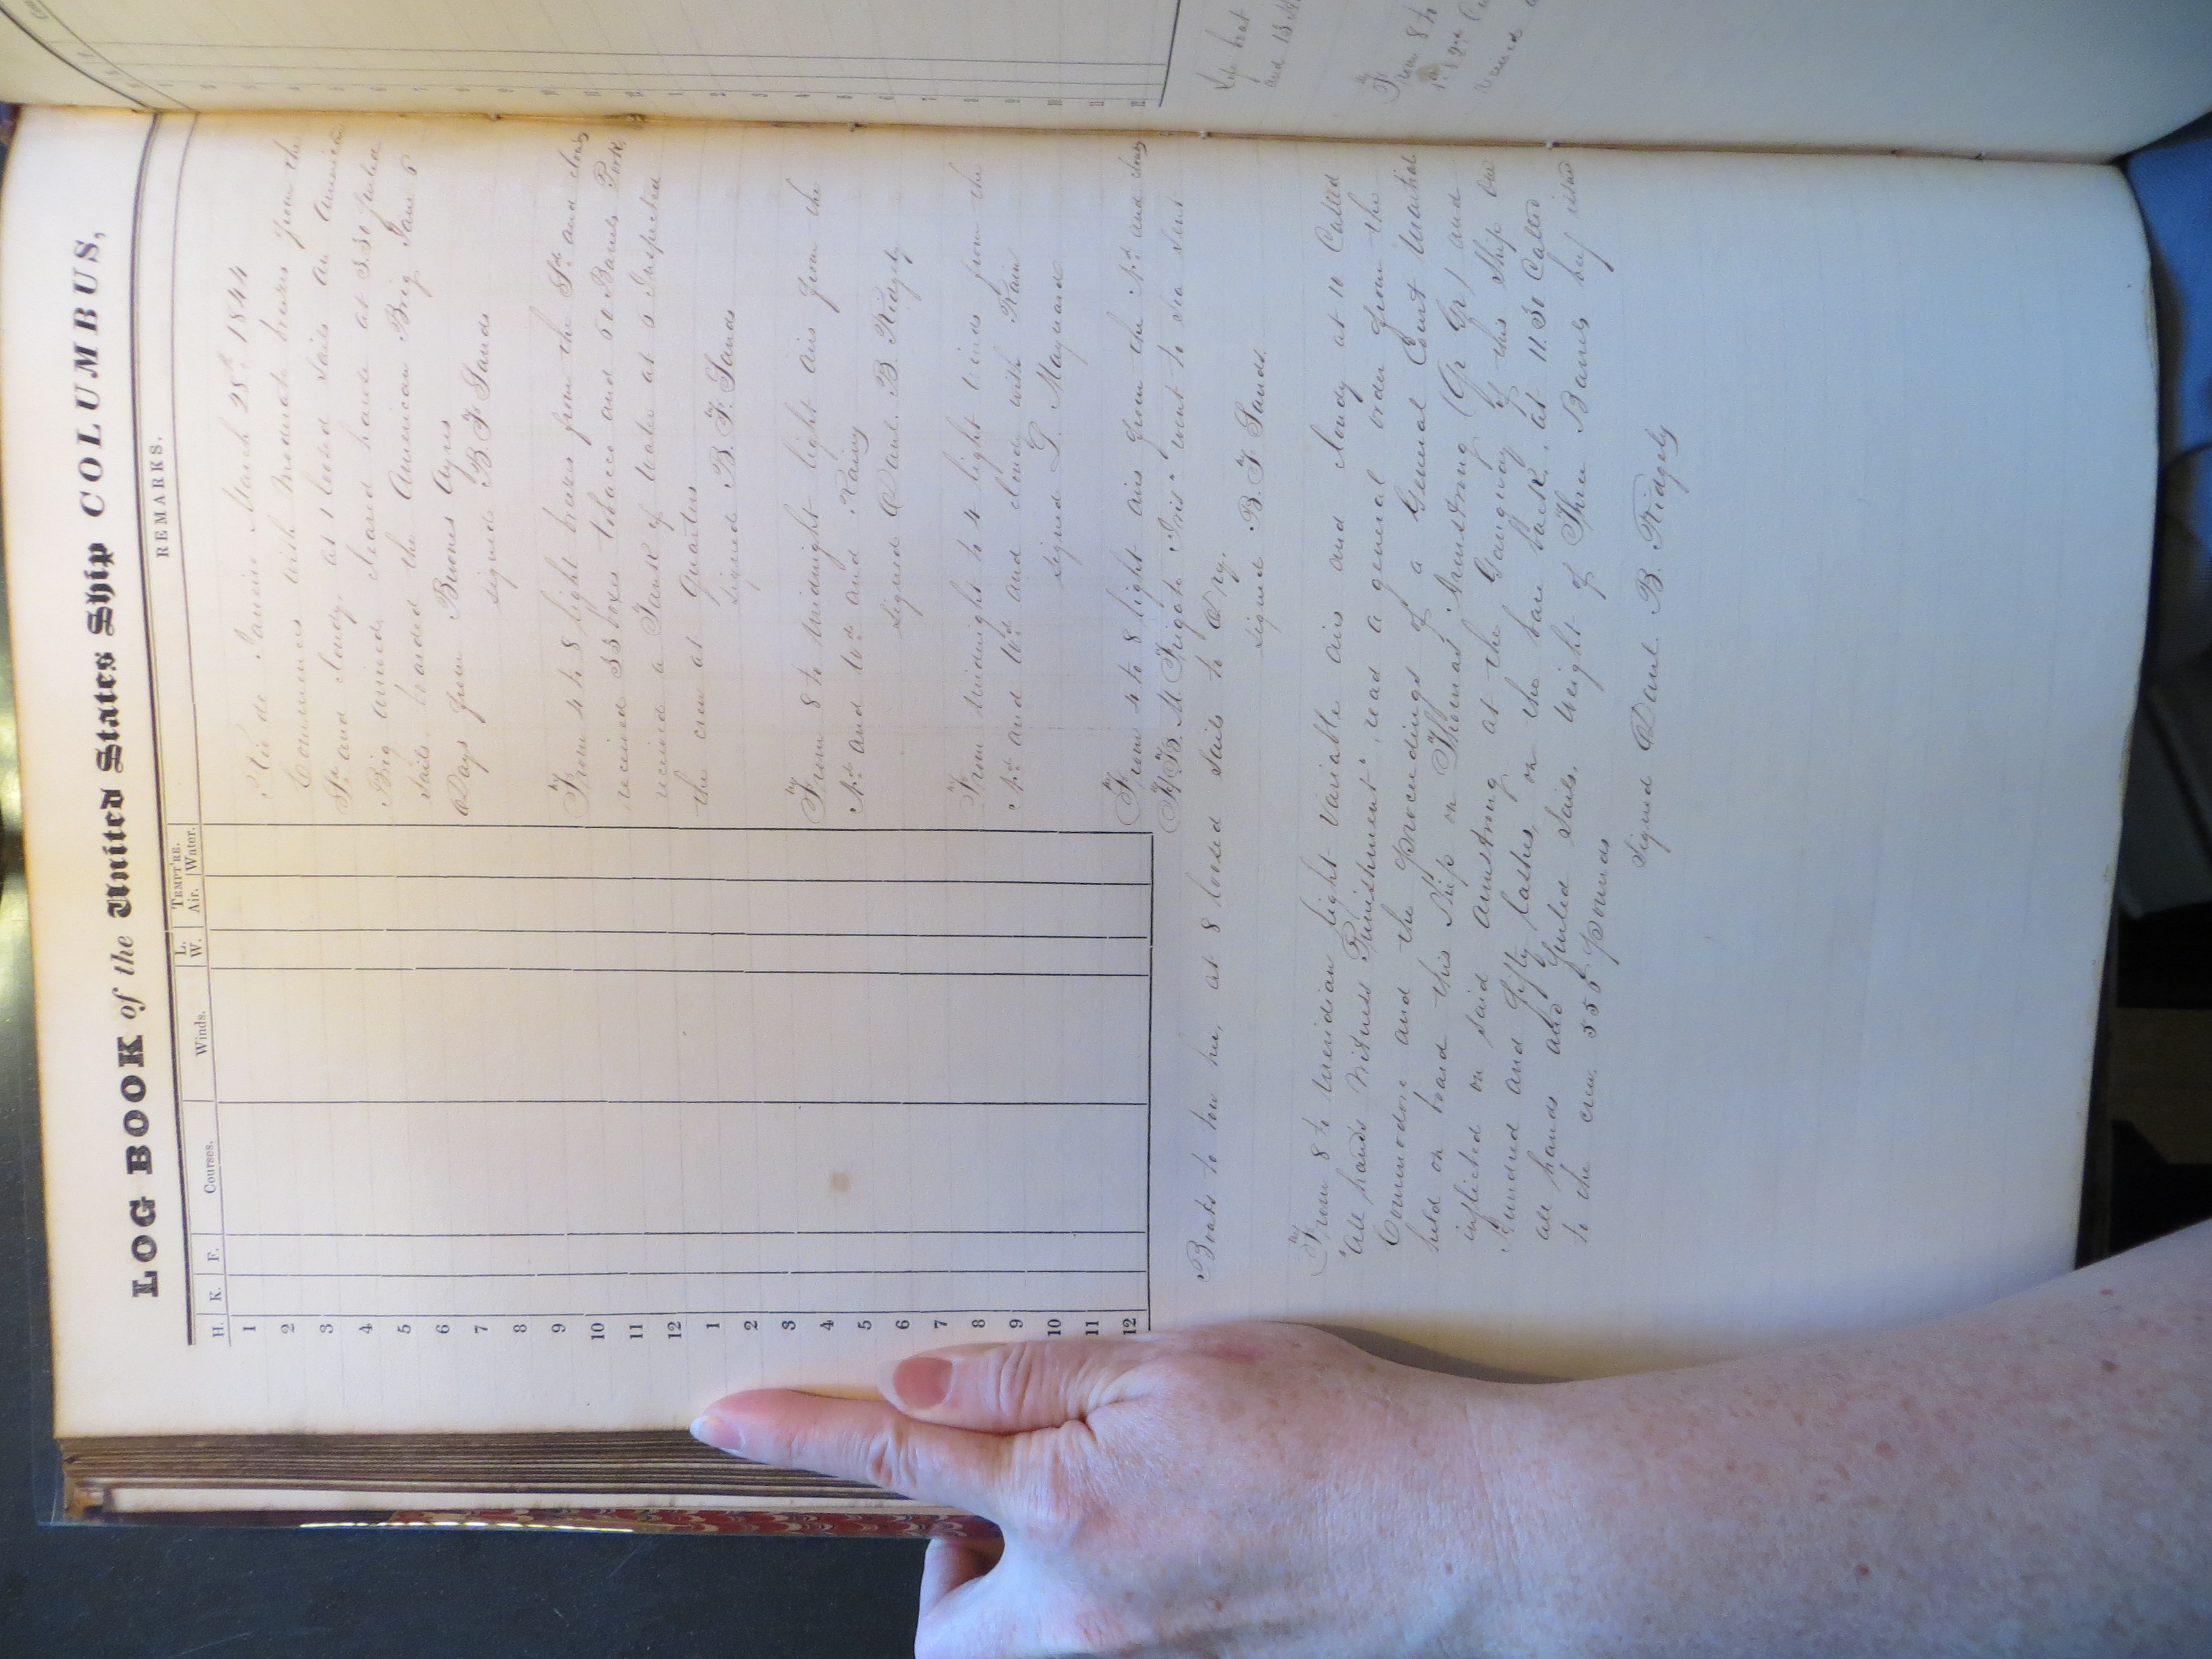 LOG BOOK of the United States Ship COLUMBUS,
H. K. F. Courses. Winds. L. W. TEMPT'RE. Air. Water. REMARKS.
1
2
3
4
5
6
7
8
9
10
11
12
1
2
3
4
5
6
7
8
9
10
11
12
Rio de Janeiro March 28th 1844
Commences with moderate breezes from the
Sd and cloudy. at 1 loosed sails an American
Brig arrived, cleared hawse at 3.30 furled
sails. boarded the American Brig Jane 8
Days from Buenos Ayres
signed B F Sands
From 4 to 8 light breezes from the Sd and cloudy
received 33 boxes tobacco and 50 Barrels Pork,
received a Tank of water at 6 Inspected
the crew at Quarters
signed B. F. Sands
From 8 to Midnight light airs from the
Nd and Wd and Rainy
signed Danl. B. Ridgely
From Midnight to 4 light winds from the
Nd and Wd and cloudy with Rain
signed L. G. Maynard
From 4 to 8 light airs from the Nd and cloudy
H. B. M. Frigate "Iris" went to sea sent
Boats to tow her, at 8 loosed sails to Dry.
signed B. F. Sands.
From 8 to Meridian light variable airs and cloudy at 10 Called
"All hands Witness Punishment", read a general order from the
Commodore and the Proceedings of a General Court Martial
held on board this Ship on Thomas Armstrong (Qr Gr) and
inflicted on said Armstrong at the Gangway of this Ship One
Hundred and Fifty lashes, on the bare back. at 11.30 Called
all hands and Furled Sails. weight of Three Barrels beef issued
to the crew. 555 Pounds
Signed Danl. B. Ridgely
1
2
3
4
5
6
7
8
9
10
11
12
and 13
From 8 to